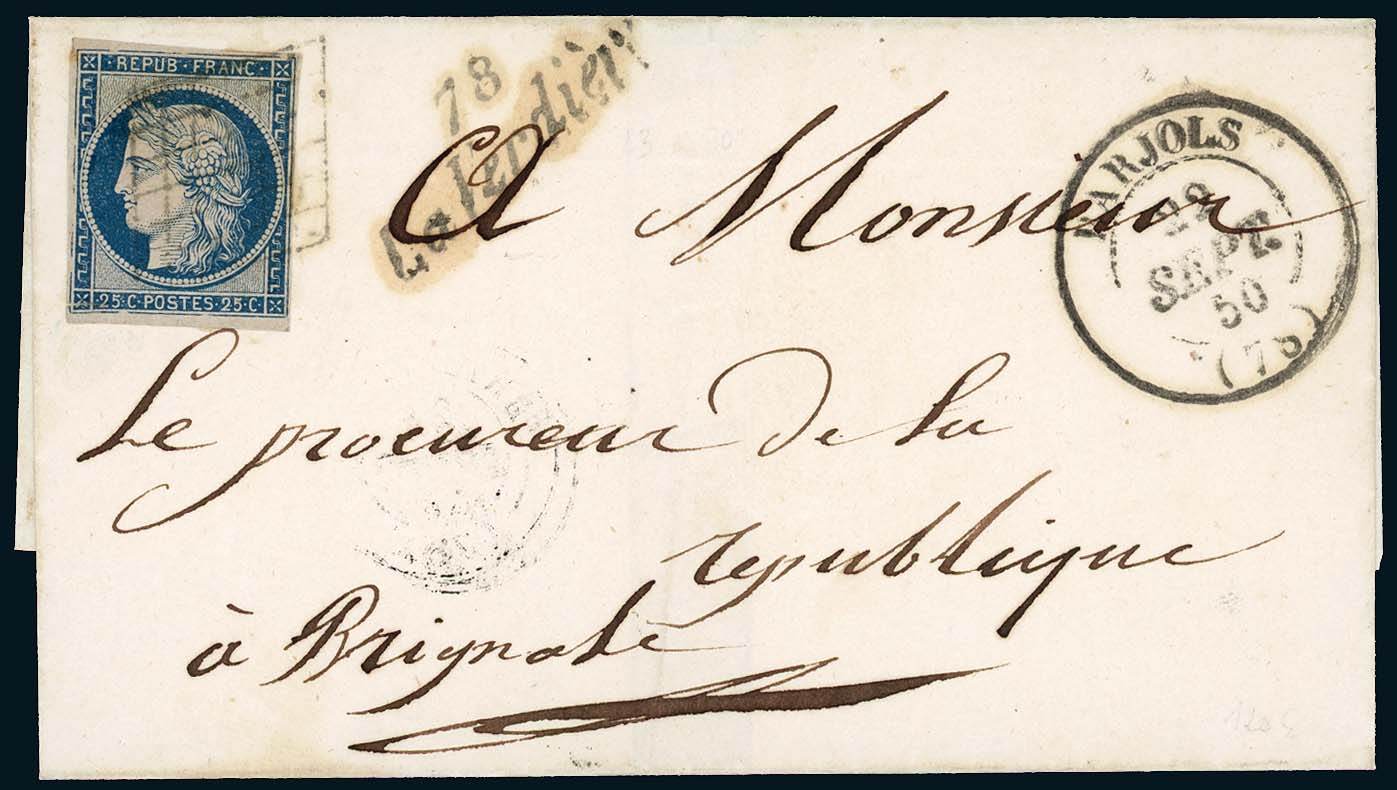 REPUB·FRANC·
25·C·POSTES·25·C·
78
La Verdière
BARJOLS
SEPT.
50
(78)
A Monsieur
Le procureur de la
republique
à Brignole